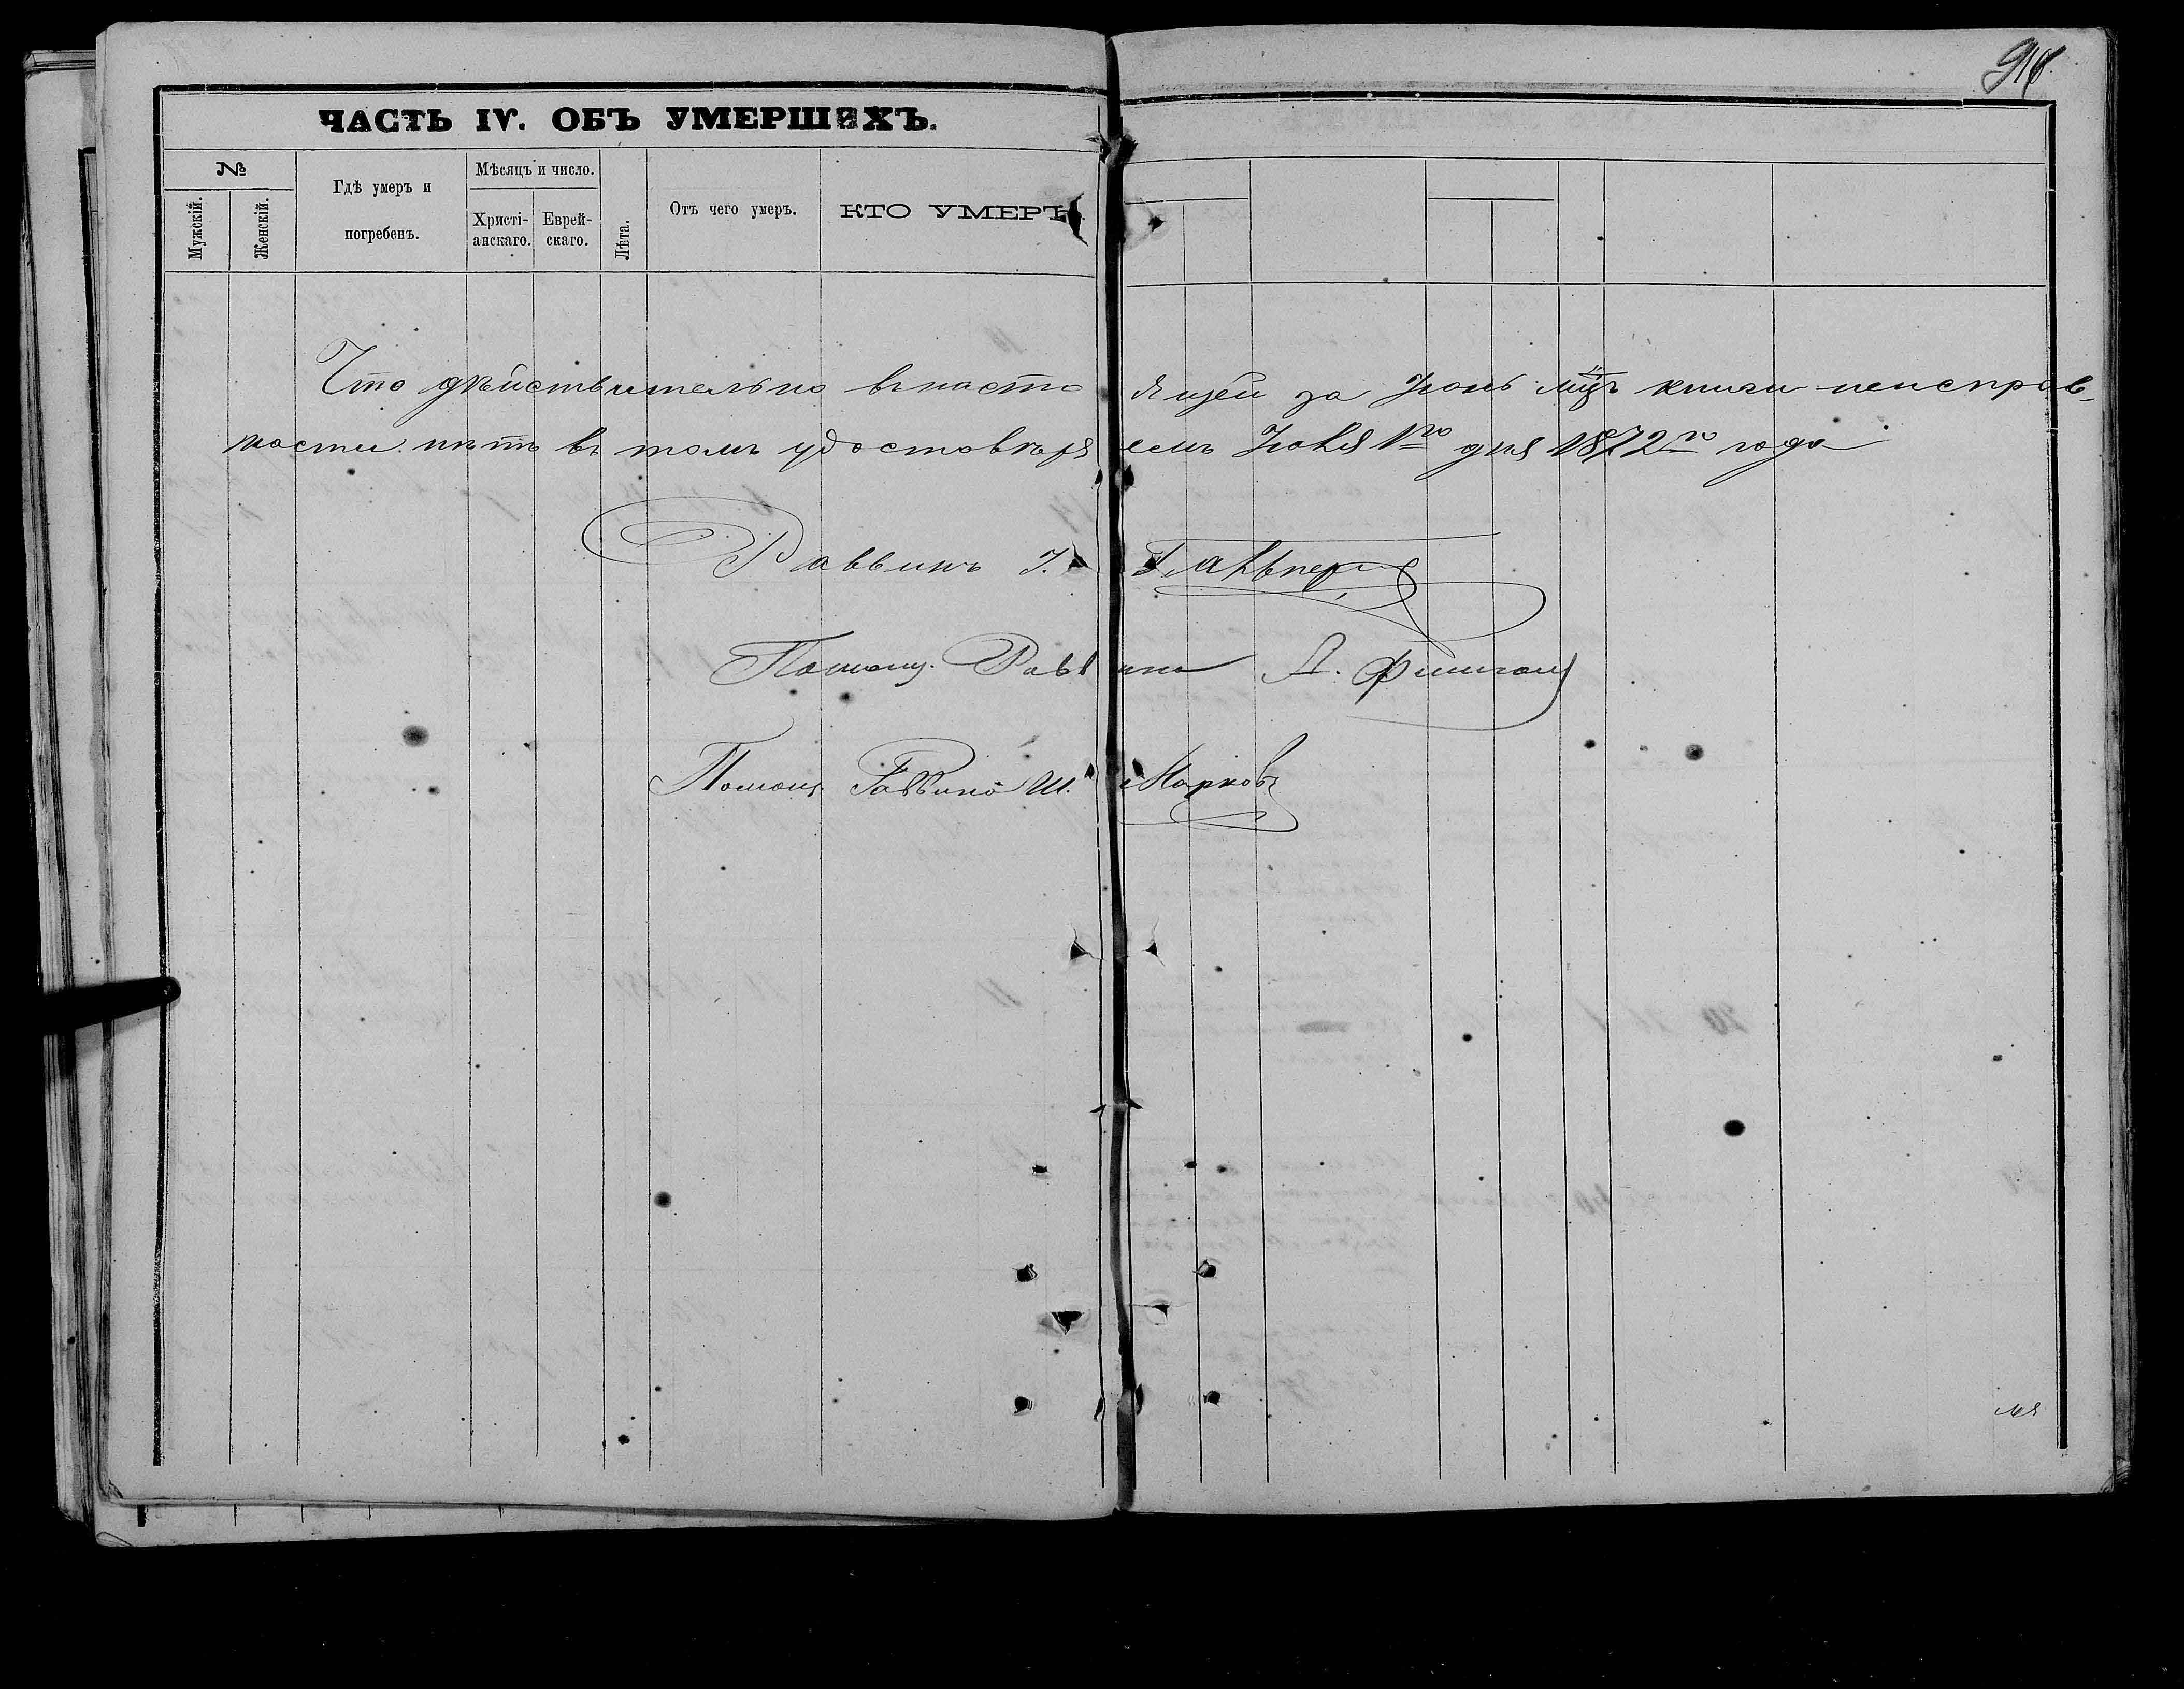 ЧАСТЬ IV. ОБЪ УМЕРШИХЪ.
№
Мужскій.
Женскій.
Гдѣ умеръ и
погребенъ.
Мѣсяцъ и число.
Христі-
анскаго.
Еврей-
скаго.
Лѣта.
Отъ чего умеръ.
КТО УМЕРЪ
Что дѣйствительно въ насто ящей за Іюнь мцъ книги неисправ-
ности нѣтъ въ томъ удостовѣря емъ Іюля 1го дня 1872го года
Раввинъ І.
Помощ. Равв ина А.
Помощ. Раввина Ш. Марковъ